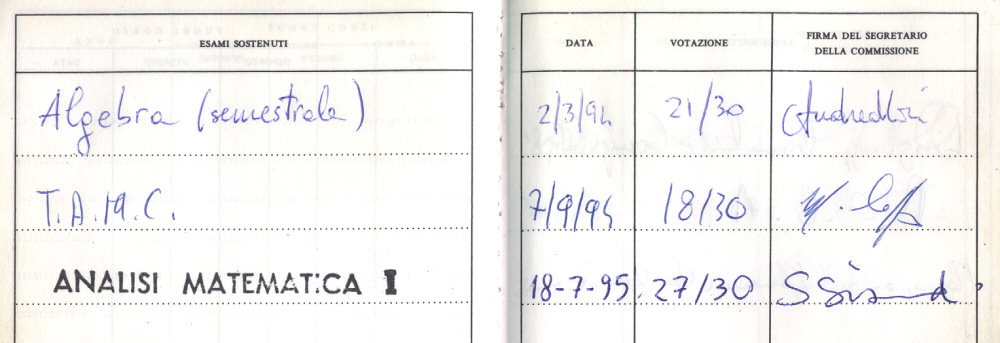 ESAMI SOSTENUTI DATA VOTAZIONE FIRMA DEL SEGRETARIO
DELLA COMMISSIONE
Algebra (semestrale) 2/3/94 21/30
T.A.M.C. 7/9/94 18/30
ANALISI MATEMATICA I 18-7-95 27/30